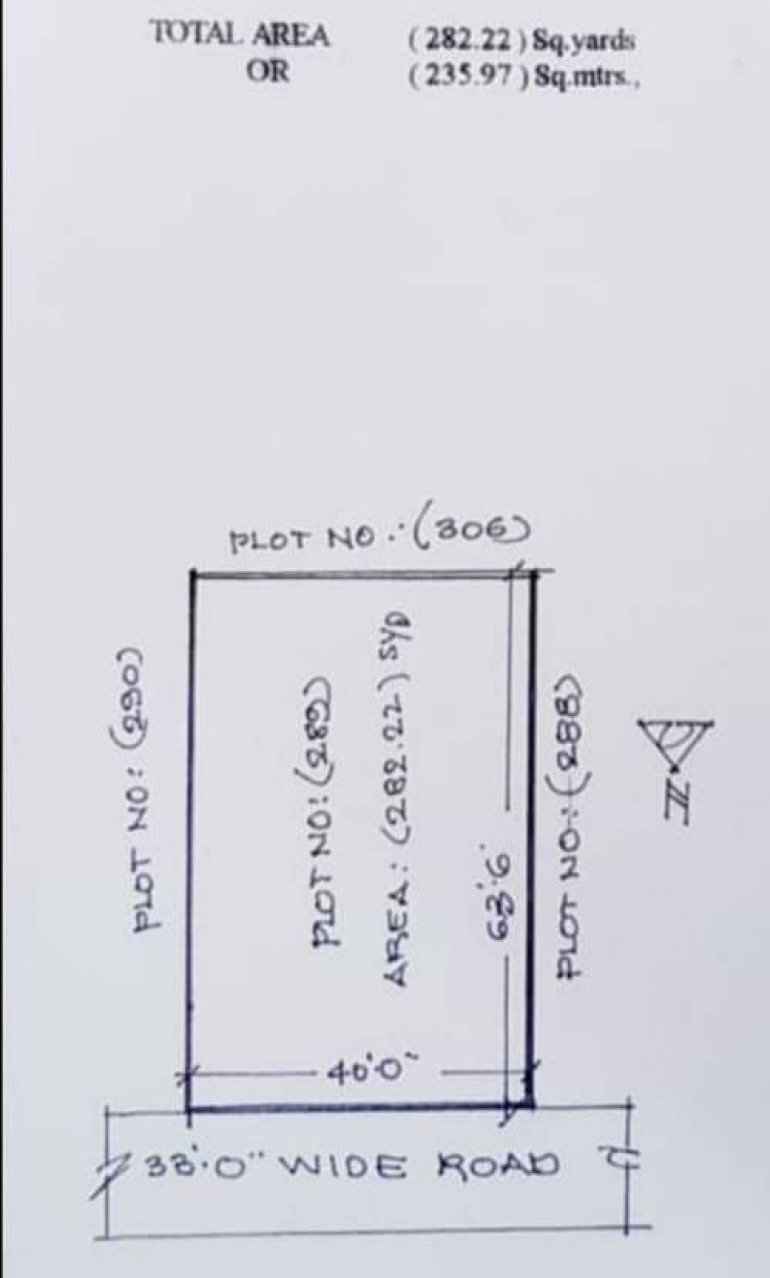 TOTAL AREA (282.22) Sq.yards
OR (235.97) Sq.mtrs.,
PLOT NO.:(306)
PLOT NO:(290)
PLOT NO:(289)
AREA:(282.22) SYD
63'.6'
PLOT NO.:(288)
N
40'.0"
33'.0" WIDE ROAD